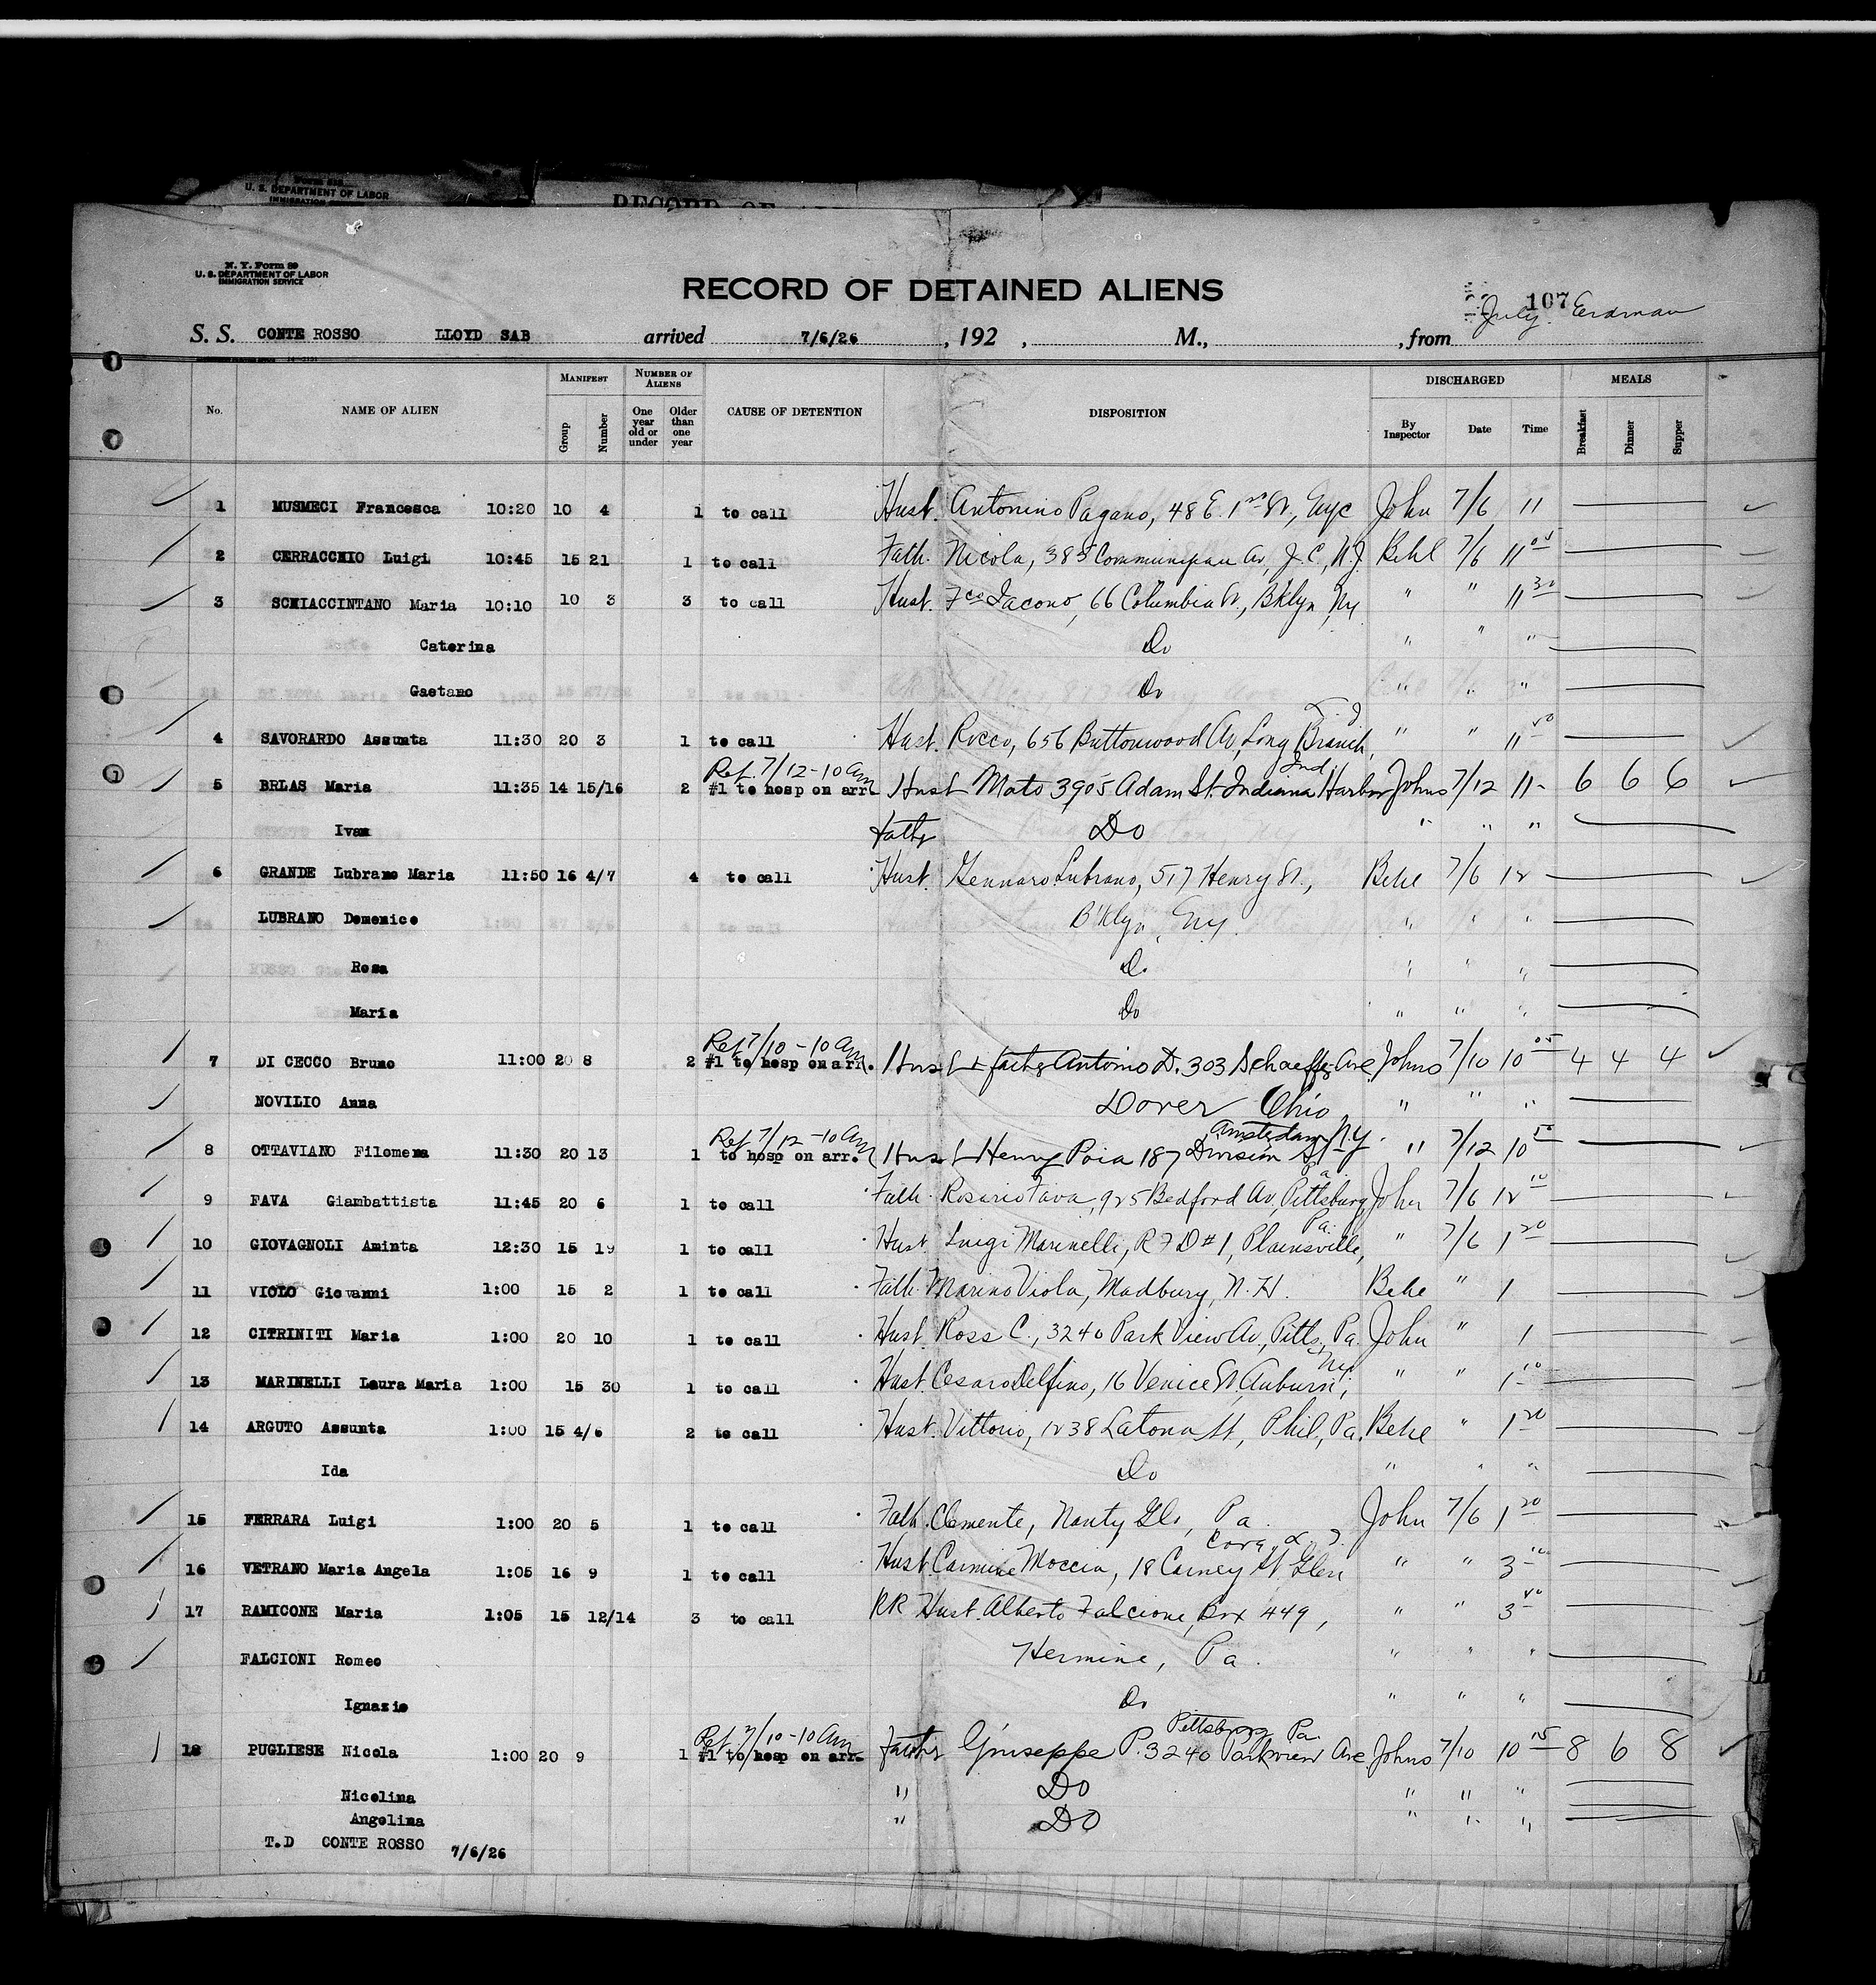 U. S. DEPARTMENT OF LABOR
IMMIGRATION SERVICE
RECORD OF
N. Y. Form 89
U. S. DEPARTMENT OF LABOR
IMMIGRATION SERVICE
RECORD OF DETAINED ALIENS
107
July Erdman
S. S. CONTE ROSSO LLOYD SAB arrived 7/6/26, 192 , M., , from
No. NAME OF ALIEN MANIFEST Group Number NUMBER OF ALIENS One year old or under Older than one year CAUSE OF DETENTION DISPOSITION DISCHARGED By Inspector Date Time MEALS Breakfast Dinner Supper
1 MUSMECI Francesca 10:20 10 4 1 to call Hust. Antonino Pagano, 48 E. 1st St., Nyc John 7/6 11
2 CERRACCHIO Luigi 10:45 15 21 1 to call Fath. Nicola, 385 Communipau Av, J.C., N.J. Behl 7/6 11 05
3 SCHIACCINTANO Maria 10:10 10 3 3 to call Hust. Fco Iacono, 66 Columbia St., Bklyn, Ny " " 11 30
Caterina Do " " "
Gaetano Do " " "
4 SAVORARDO Assunta 11:30 20 3 1 to call Hust. Rocco, 656 Buttonwood Av, Long Branch, " " 11 50
Ref. 7/12-10 Am Ind
5 BRLAS Maria 11:35 14 15/16 2 #1 to hosp on arr. Hust Mato 3905 Adam St. Indiana Harbor Johns 7/12 11- 6 6 6
Ivan Fathr Do " " "
6 GRANDE Lubrano Maria 11:50 16 4/7 4 to call Hust. Gennaro Lubrano, 517 Henry St., Behl 7/6 12
LUBRANO Domenico B'klyn, Ny. " " "
Rosa Do " " "
Maria Do " " "
Ref. 7/10-10 Am
7 DI CECCO Bruno 11:00 20 8 2 #1 to hosp on arr. Hust + fathr Antonio D. 303 Schaeffer Ave Johns 7/10 10 05 4 4 4
NOVILIO Anna Dover Ohio " " "
Ref 7/12-10 Am Amsterdam N.Y.
8 OTTAVIANO Filomena 11:30 20 13 1 to hosp on arr. Hust Henry Poia 187 Division St " 7/12 10 50
Pa.
9 FAVA Giambattista 11:45 20 6 1 to call Fath. Rosario Fava, 925 Bedford Av, Pittsburg, John 7/6 12 10
Pa.
10 GIOVAGNOLI Aminta 12:30 15 19 1 to call Hust. Luigi Marinelli, R F D #1, Plainsville, " 7/6 1 20
11 VIOLO Giovanni 1:00 15 2 1 to call Fath. Marino Viola, Madbury, N.H. Behl " 1
12 CITRINITI Maria 1:00 20 10 1 to call Hust. Ross C., 3240 Park View Av., Pitts, Pa. John " 1
Ny.
13 MARINELLI Laura Maria 1:00 15 30 1 to call Hust. Cesaro Delfino, 16 Venice St, Auburn, " " 1 10
14 ARGUTO Assunta 1:00 15 4/6 2 to call Hust. Vittorio, 1238 Latona St, Phil, Pa. Behl " 1 20
Ida Do " " "
15 FERRARA Luigi 1:00 20 5 1 to call Fath. Clemente, Nanty Glo, Pa. John 7/6 1 20
Cove, L. I.
16 VETRANO Maria Angela 1:05 16 9 1 to call Hust. Carmine Moccia, 18 Carney St Glen " " 3 10
17 RAMICONE Maria 1:05 15 12/14 3 to call RR Hust. Alberto Falcione, Box 449, " " 3 40
FALCIONI Romeo Hermine, Pa. " " "
Ignazio Do " " "
Ref. 7/10-10 Am Pittsburg Pa.
18 PUGLIESE Nicola 1:00 20 9 1 #1 to hosp on arr. Fathr Giuseppe P. 3240 Parkview Ave Johns 7/10 10 15 8 6 8
Nicolina " Do " " "
Angelina " Do " " "
T.D CONTE ROSSO 7/6/26